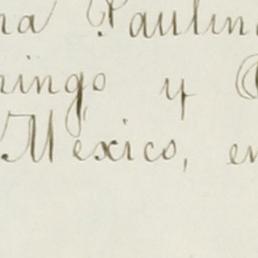 na Paulin
ingo y
México, en